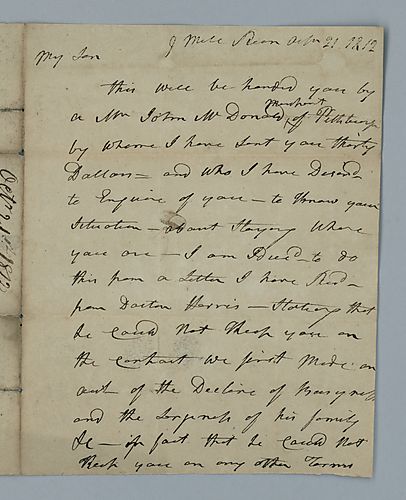 9 Mile Run Octr 21 1812
My Son
This will be handed you by
a Mr John McDonald, merchant of Pittsburg
by whome I have Sent you thirty
Dollars — and who I have Desird
to Enquire of you — to Know your
Situation — about Staying Where
you are — I am Induc'd to do
this from a Letter I have Recd
from Doctor Harris — Stateing that
he Could Not Keep you on
the Contract we first Made on
acct of the Decline of Buisyness
and the Largeness of his family
&c — in fact that he Could Not
Keep you on any other Terms
Octr 21st 1812